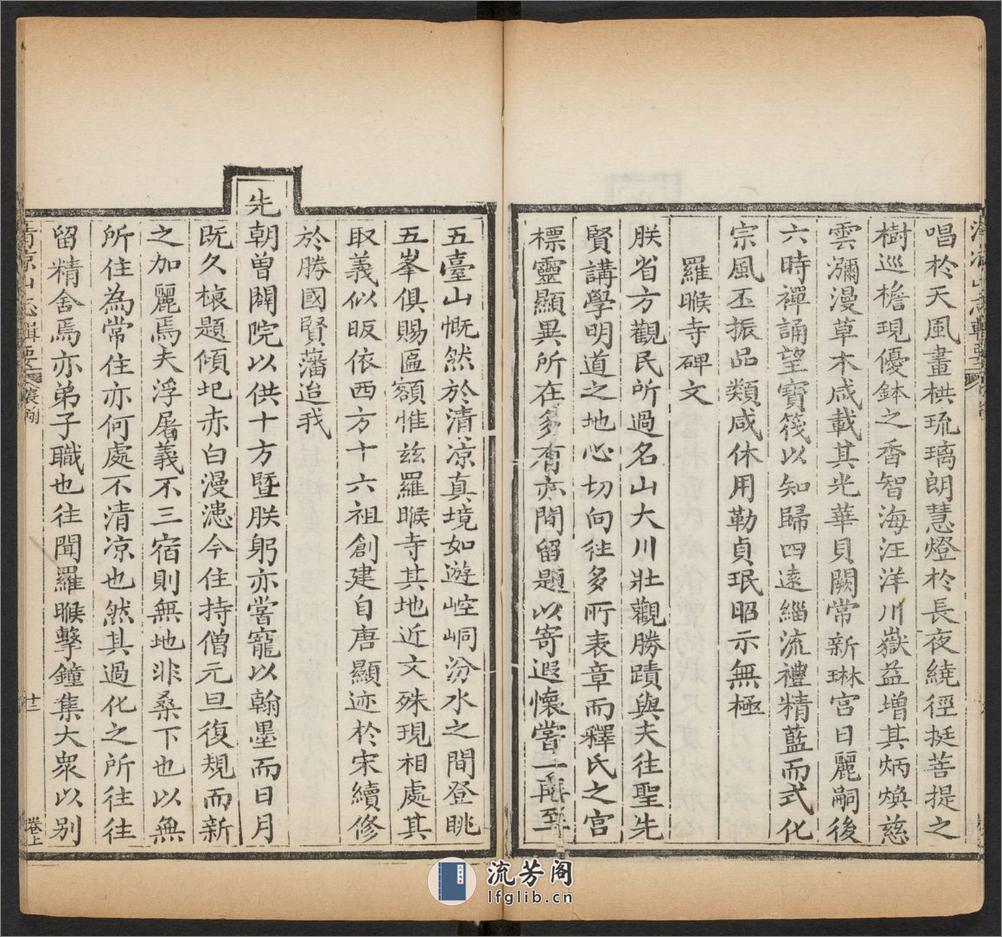 唱於天風畫栱琉璃朗慧燈於長夜繞徑挺菩提之
樹巡檐現優鉢之香智海汪洋川嶽益增其炳煥慈
雲瀰漫草木咸載其光華貝闕常新琳宮日麗嗣後
六時禪誦望寶筏以知歸四遠緇流禮精藍而式化
宗風丕振品類咸休用勒貞珉昭示無極
羅睺寺碑文
朕省方觀民所過名山大川壯觀勝蹟與夫往聖先
賢講學明道之地心切向往多所表章而釋氏之宮
標靈顯異所在多有亦間留題以寄遐懷嘗一再至
五臺山慨然於清凉真境如遊崆峒汾水之間登眺
五峯俱賜區額惟兹羅睺寺其地近文殊現相處其
取義似昄依西方十六祖創建自唐顯迹於宋續修
於勝國賢藩迨我
先
朝曾闢院以供十方暨朕躬亦嘗寵以翰墨而日月
既久榱題傾圮赤白漫漶今住持僧元旦復規而新
之加麗焉夫浮屠義不三宿則無地非桑下也以無
所住為常住亦何處不清凉也然其過化之所往往
留精舍焉亦弟子職也往聞羅睺擊鐘集大衆以别
清凉山志輯要
卷上
流芳阁
lfglib.cn